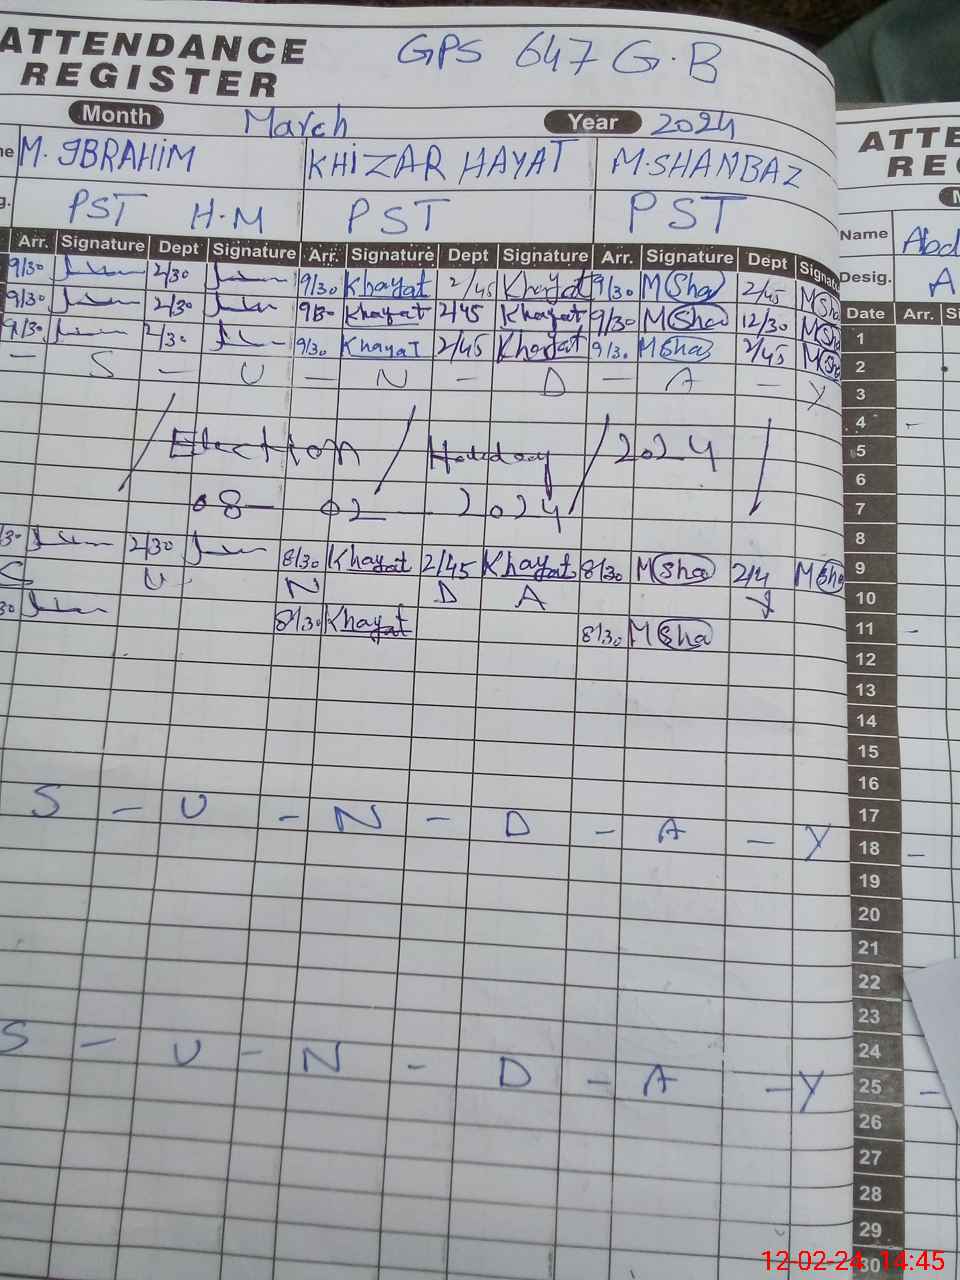 ATTENDANCE REGISTER
GPS 647 G.B
Month March Year 2024
M. IBRAHIM KHIZAR HAYAT M.SHANBAZ
PST H.M PST PST
Arr. Signature Dept Signature Arr. Signature Dept Signature Arr. Signature Dept Signatu
9/30 2/30 9/30 Khayat 2/45 Khayat 9/30 MSha 2/45 MSha
9/30 2/30 930 Khayat 2/45 Khayat 9/30 MSha 12/30 MSha
9/30 2/30 9/30 Khayat 2/45 Khayat 9/3. MSha 2/45 MSha
- S - U - N - D - A - Y
/ Election / Holiday / 2024 /
08 - 02 - 2024
/30 2/30 8/30 Khayat 2/45 Khayat 8/30 MSha 2/4 MSha
S U N D A Y
30 8/30 Khayat 8/30 MSha
S - U - N - D - A - Y
S - U - N - D - A - Y
ATTE
REG
Name Abd
Desig. A
Date Arr. Si
1
2
3
4 -
5
6
7
8
9
10
11 -
12
13
14
15
16
17
18 -
19
20
21
22
23
24
25 -
26
27
28
29
30
12-02-24 14:45